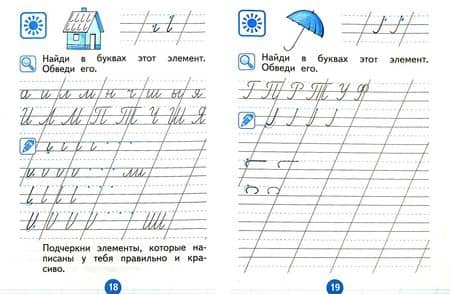 Найди в буквах этот элемент.
Обведи его.
а и л м н ч ш ы я
И Л М П Т Ч Ш Я
ли
ши
Подчеркни элементы, которые на-
писаны у тебя правильно и кра-
сиво.
18
Найди в буквах этот элемент.
Обведи его.
Г П Р Т У Ф
19